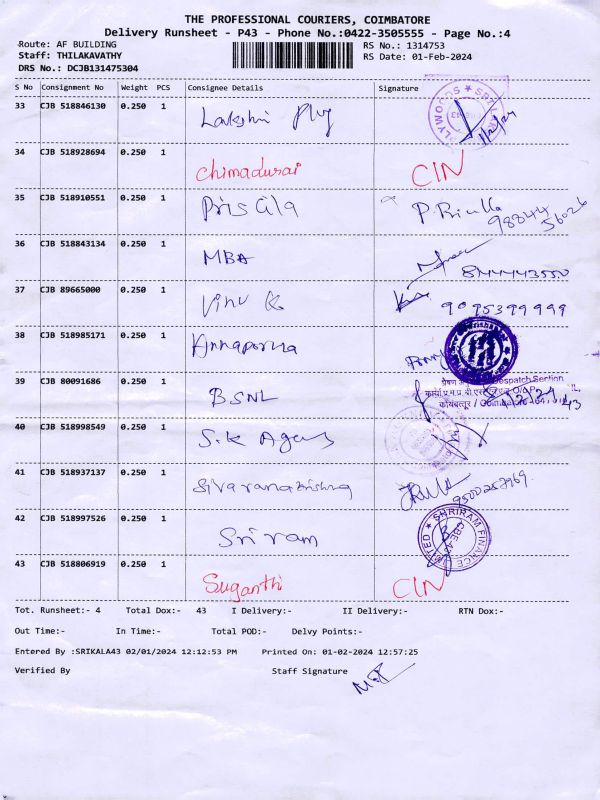 THE PROFESSIONAL COURIERS, COIMBATORE
Delivery Runsheet - P43 - Phone No.:0422-3505555 - Page No.:4
Route: AF BUILDING
RS No.: 1314753
Staff: THILAKAVATHY
RS Date: 01-Feb-2024
DRS No.: DCJB131475304
S No Consignment No Weight PCS Consignee Details Signature
33 CJB 518846130 0.250 1 Lakshmi Ply
34 CJB 518928694 0.250 1 Chinnadurai CIN
35 CJB 518910551 0.250 1 Priscila
98844
56026
36 CJB 518843134 0.250 1 MBA
37 CJB 89665000 0.250 1 Vinu K 9095399999
38 CJB 518985171 0.250 1 Annaporna
39 CJB 80091686 0.250 1 BSNL
40 CJB 518998549 0.250 1 S.K
41 CJB 518937137 0.250 1
42 CJB 518997526 0.250 1 Sri ram
SHRIRAM FINANCE LIMITED
43 CJB 518806919 0.250 1 Suganthi CIN
Tot. Runsheet:- 4 Total Dox:- 43 I Delivery:- II Delivery:- RTN Dox:-
Out Time:- In Time:- Total POD:- Delvy Points:-
Entered By :SRIKALA43 02/01/2024 12:12:53 PM Printed On: 01-02-2024 12:57:25
Verified By Staff Signature